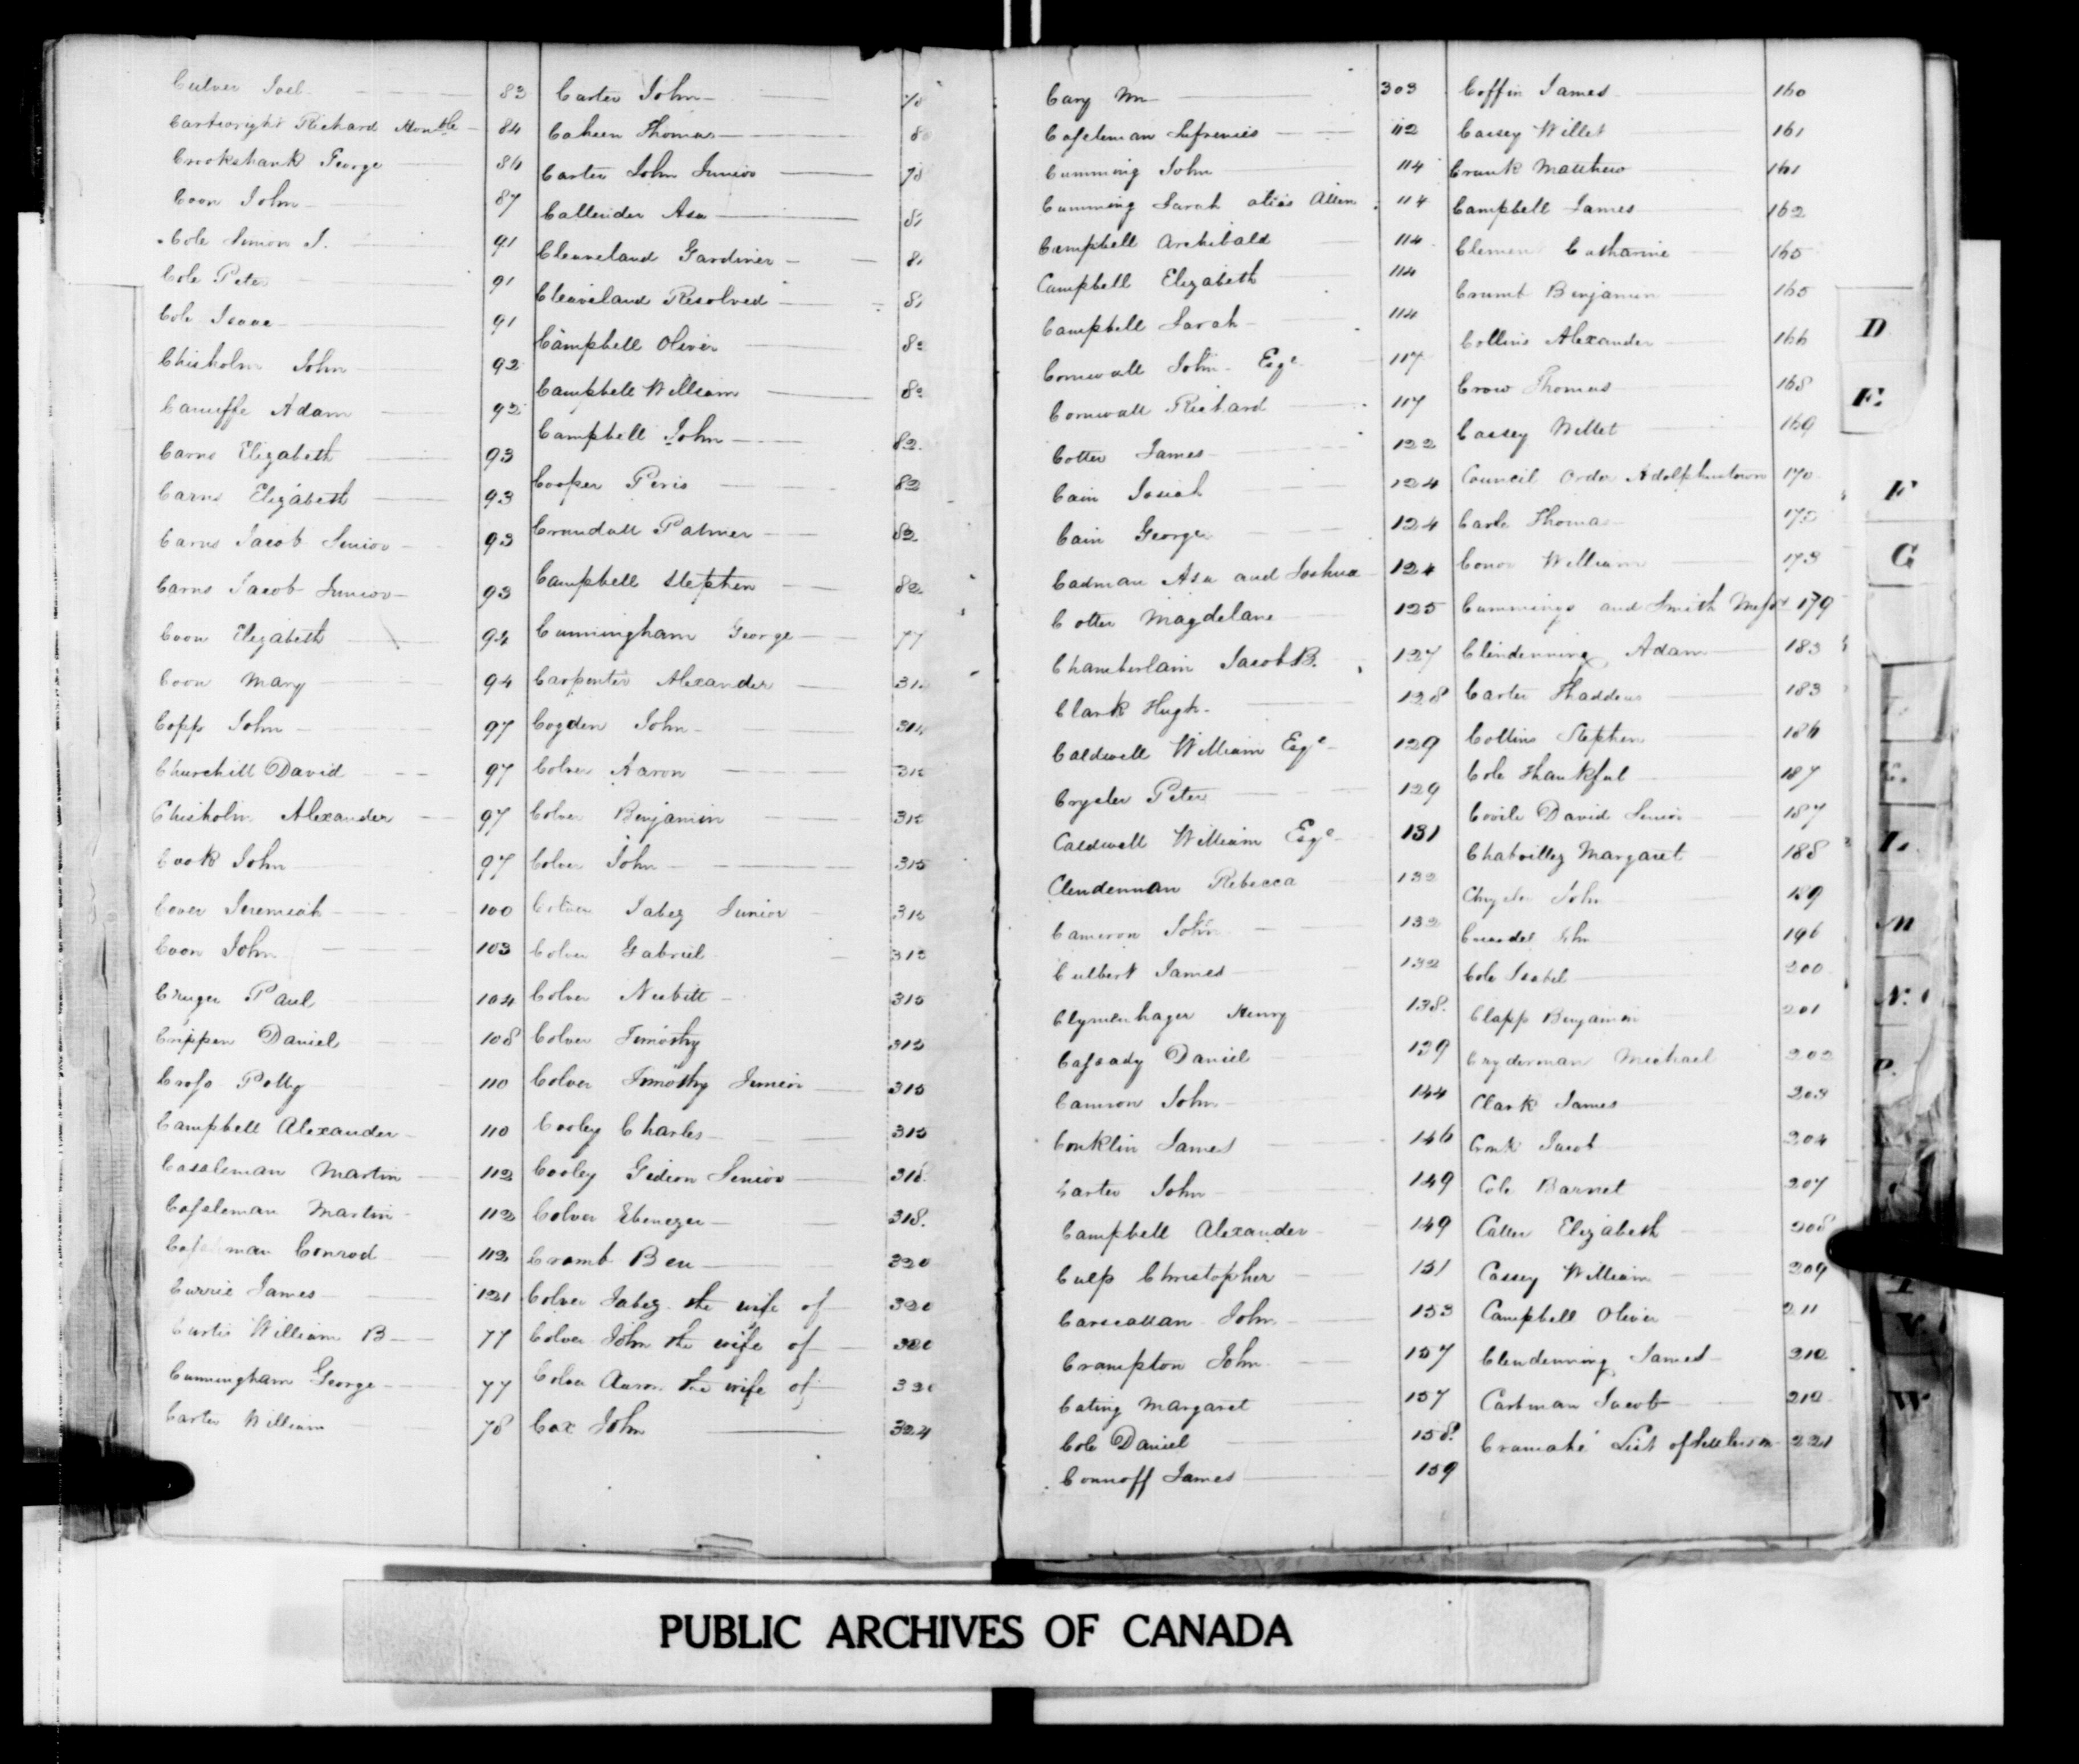 Culver Joel 83
Cartwright Richard Honble 84
Crookshank George 84
Coon John 87
Cole Simon I. 91
Cole Peter 91
Cole Isaac 91
Chisholm John 92
Canieffe Adam 92
Carns Elizabeth 93
Carns Elizabeth 93
Carns Jacob Senior 93
Carns Jacob Junior 93
Coon Elizabeth 94
Coon Mary 94
Copp John 97
Churchill David 97
Chisholm Alexander 97
Cook John 97
Cover Jeremiah 100
Coon John 103
Cruger Paul 104
Crippen Daniel 108
Crofs Polly 110
Campbell Alexander 110
Casaleman Martin 112
Cafsleman Martin 112
Conrod 112
Currie James 121
Curtis William B 77
Cunningham George 77
Carter William 78
Carter John 78
Caheen Thomas
Carter John Junior 78
Callender Asa
Cleaveland Gardiner
Cleaveland Resolved
Campbell Oliver
Campbell William
Campbell John 82
Cooper Peris 82
Crandall Palmer 82
Campbell Stephen 82
Cunningham George 77
Carpenter Alexander
Cogden John
Colver Aaron 315
Colver Benjamin 315
Colver John 315
Colver Jabez Junior 315
Colver Gabriel 315
Colver Nesbitt 315
Colver Timothy 315
Colver Timothy Junior 315
Cooley Charles 315
Cooley Gideon Senior 318.
Colver Ebenezer 318.
Cromb Ben 320
Colver Jabez the wife of 320
Colver John the wife of 320
Colver Aaron the wife of 320
Cox John 324
Cary Wm 303
Cafsleman Sufrenies 112
Cumming John 114
Cumming Sarah alias Allen 114
Campbell Archibald 114
Campbell Elizabeth 114
Campbell Sarah 114
Cornwall John Esqr 117
Cornwall Richard 117
Cotter James 122
Cain Josiah 124
Cain George 124
Cadman Asa and Joshua 124
Cotter Magdelane 125
Chamberlain Jacob B. 127
Clark Hugh 128
Caldwell William Esqr 129
Crysler Peter 129
Caldwell William Esqr 131
Clendennan Rebecca 132
Cameron John 132
Culbert James 132
Clymenhager Henry 138.
Cafsady Daniel 139
Camron John 144
Conklin James 146
Carter John 149
Campbell Alexander 149
Culp Christopher 151
Carscallan John 153
Crampton John 157
Cating Margaret 157
Cole Daniel 158.
Connoff James 159
Coffin James 160
Cassey Willet 161
Crank Matthew 161
Campbell James 162
Clement Catharine 165
Crumb Benjamin 165
Collins Alexander 166
Crow Thomas 168
Cassey Willet 169
Council Order Adolphustown 170
Carle Thomas
Conor William 173
Cummings and Smith Mefsrs 179
Clindenning Adam 183
Carter Thaddeus 183
Collins Stephen 186
Cole Thankful 187
Covile David Senior 187
Chatvillez Margaret 188
Chrysler John 189
196
Cole Isabel 200
Clapp Benjamin 201
Cryderman Michael 202
Clark James 203
Cronk Jacob 204
Cole Barnet 207
Caller Elizabeth 208
Cassey William 209
Campbell Oliver 211
Clendenning James 212
Cartman Jacob 212
Cramahé List of 221
D
E.
F
G
L.
M
N.
P.
V
W
PUBLIC ARCHIVES OF CANADA